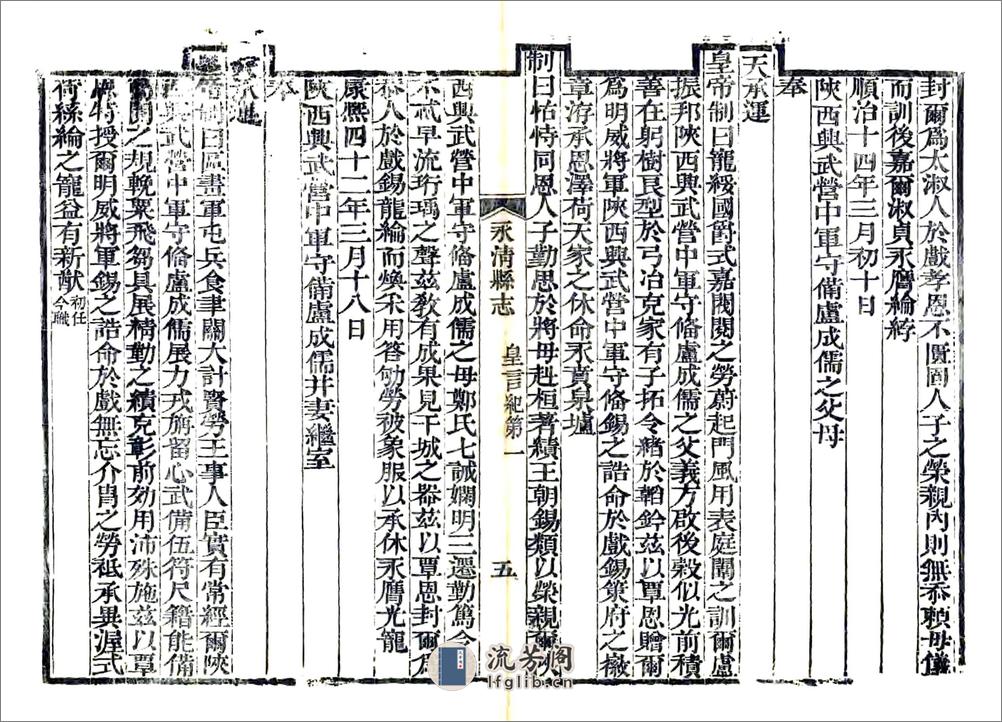 封爾爲太淑人於戲孝思不匱固人子之榮親內則無忝賴母儀
而訓後嘉爾淑貞永膺綸綍
順治十四年三月初十日
陝西興武營中軍守備盧成儒之父母
奉
天承運
皇帝制曰寵綏國爵式嘉閥閱之勞蔚起門風用表庭闈之訓爾盧
振邦陝西興武營中軍守備盧成儒之父義方啟後穀似光前積
善在躬樹良型於弓冶克家有子拓令緒於韜鈐茲以覃恩贈爾
爲明威將軍陝西興武營中軍守備錫之誥命於戲錫策府之徽
章洊承恩澤荷天家之休命永賁泉壚
制曰怙恃同恩人子勤思於將母赳桓著績王朝錫類以榮親爾
永清縣志
皇言紀第一
五
西興武營中軍守備盧成儒之母鄭氏七誡嫻明三遷勤篤令
不忒早流珩瑀之聲茲敎有成果見干城之器茲以覃恩封爾爲
恭人於戲錫龍綸而煥采用答劬勞被象服以承休永膺光寵
康熙四十二年三月十八日
陝西興武營中軍守備盧成儒并妻繼室
奉
天承運
皇帝制曰區畫軍屯兵食聿關大計賢勞王事人臣實有常經爾陝
西興武營中軍守備盧成儒展力戎旃留心武備伍符尺籍能備
之規輓粟飛芻具展精勤之績克彰前効用沛殊施茲以覃
恩特授爾明威將軍錫之誥命於戲無忘介冑之勞祗承異渥式
荷絲綸之寵益有新猷初任今職
流芳閣
lfglib.cn